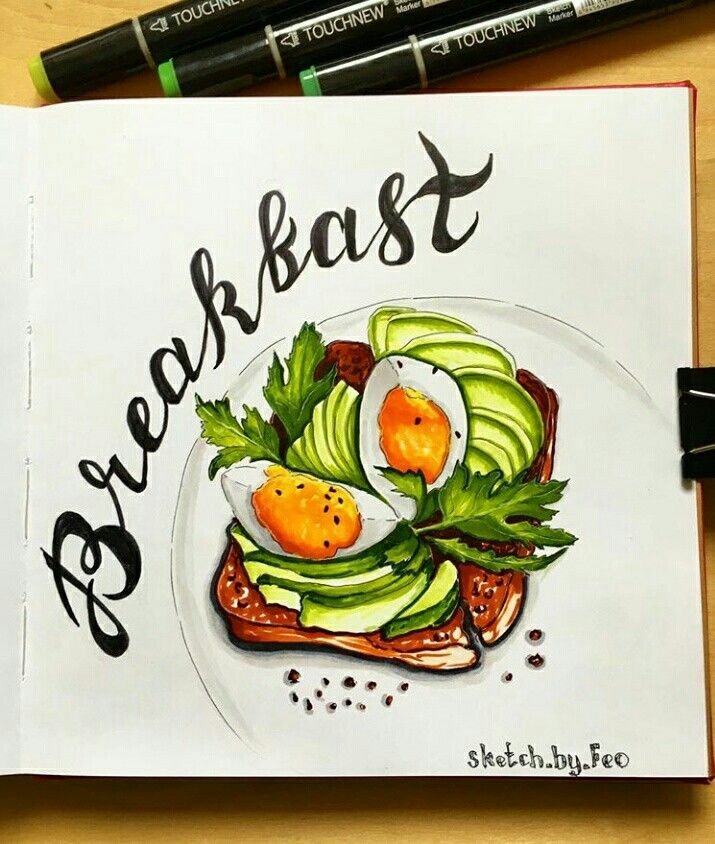 TOUCHNEW
TOUCHNEW Sketch Marker
TOUCHNEW Sketch Marker
Breakfast
sketch.by.Feo